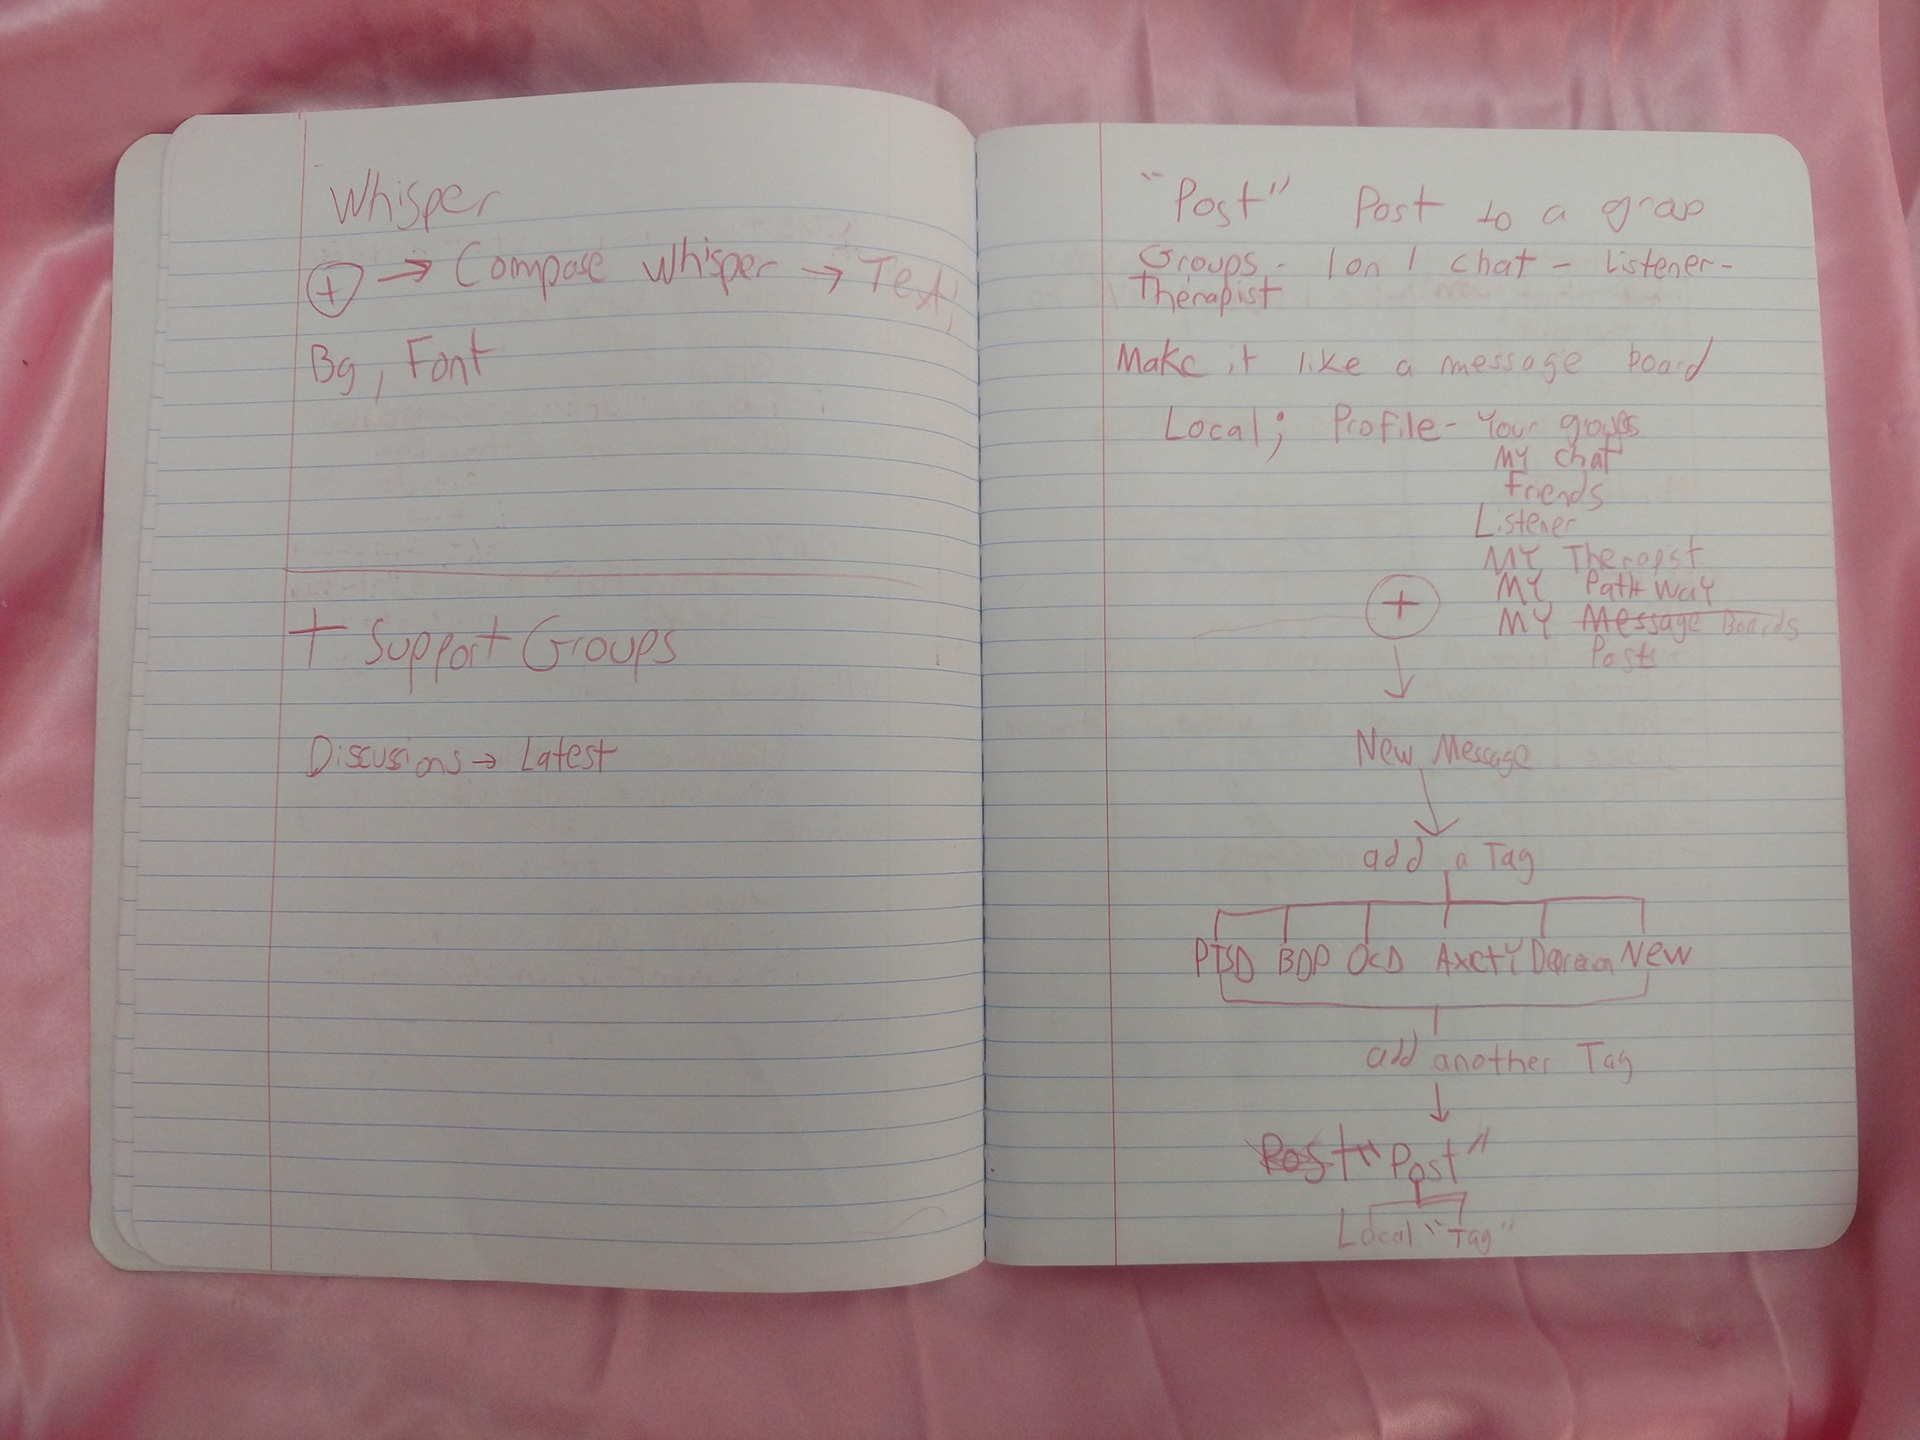 Whisper
+ → Compose whisper → Text,
Bg, Font
+ Support Groups
Discussions → Latest
"Post" Post to a grop
Groups - 1 on 1 chat - Listener -
Therapist
Make it like a message board
Local; Profile - Your groups
MY chat
Friends
Listener
MY Therapist
MY PathWay
MY Message Boards
Posts
+
↓
New Message
↓
add a Tag
PTSD BDP OCD Axcty New
add another Tag
↓
Post "Post"
Local "Tag"